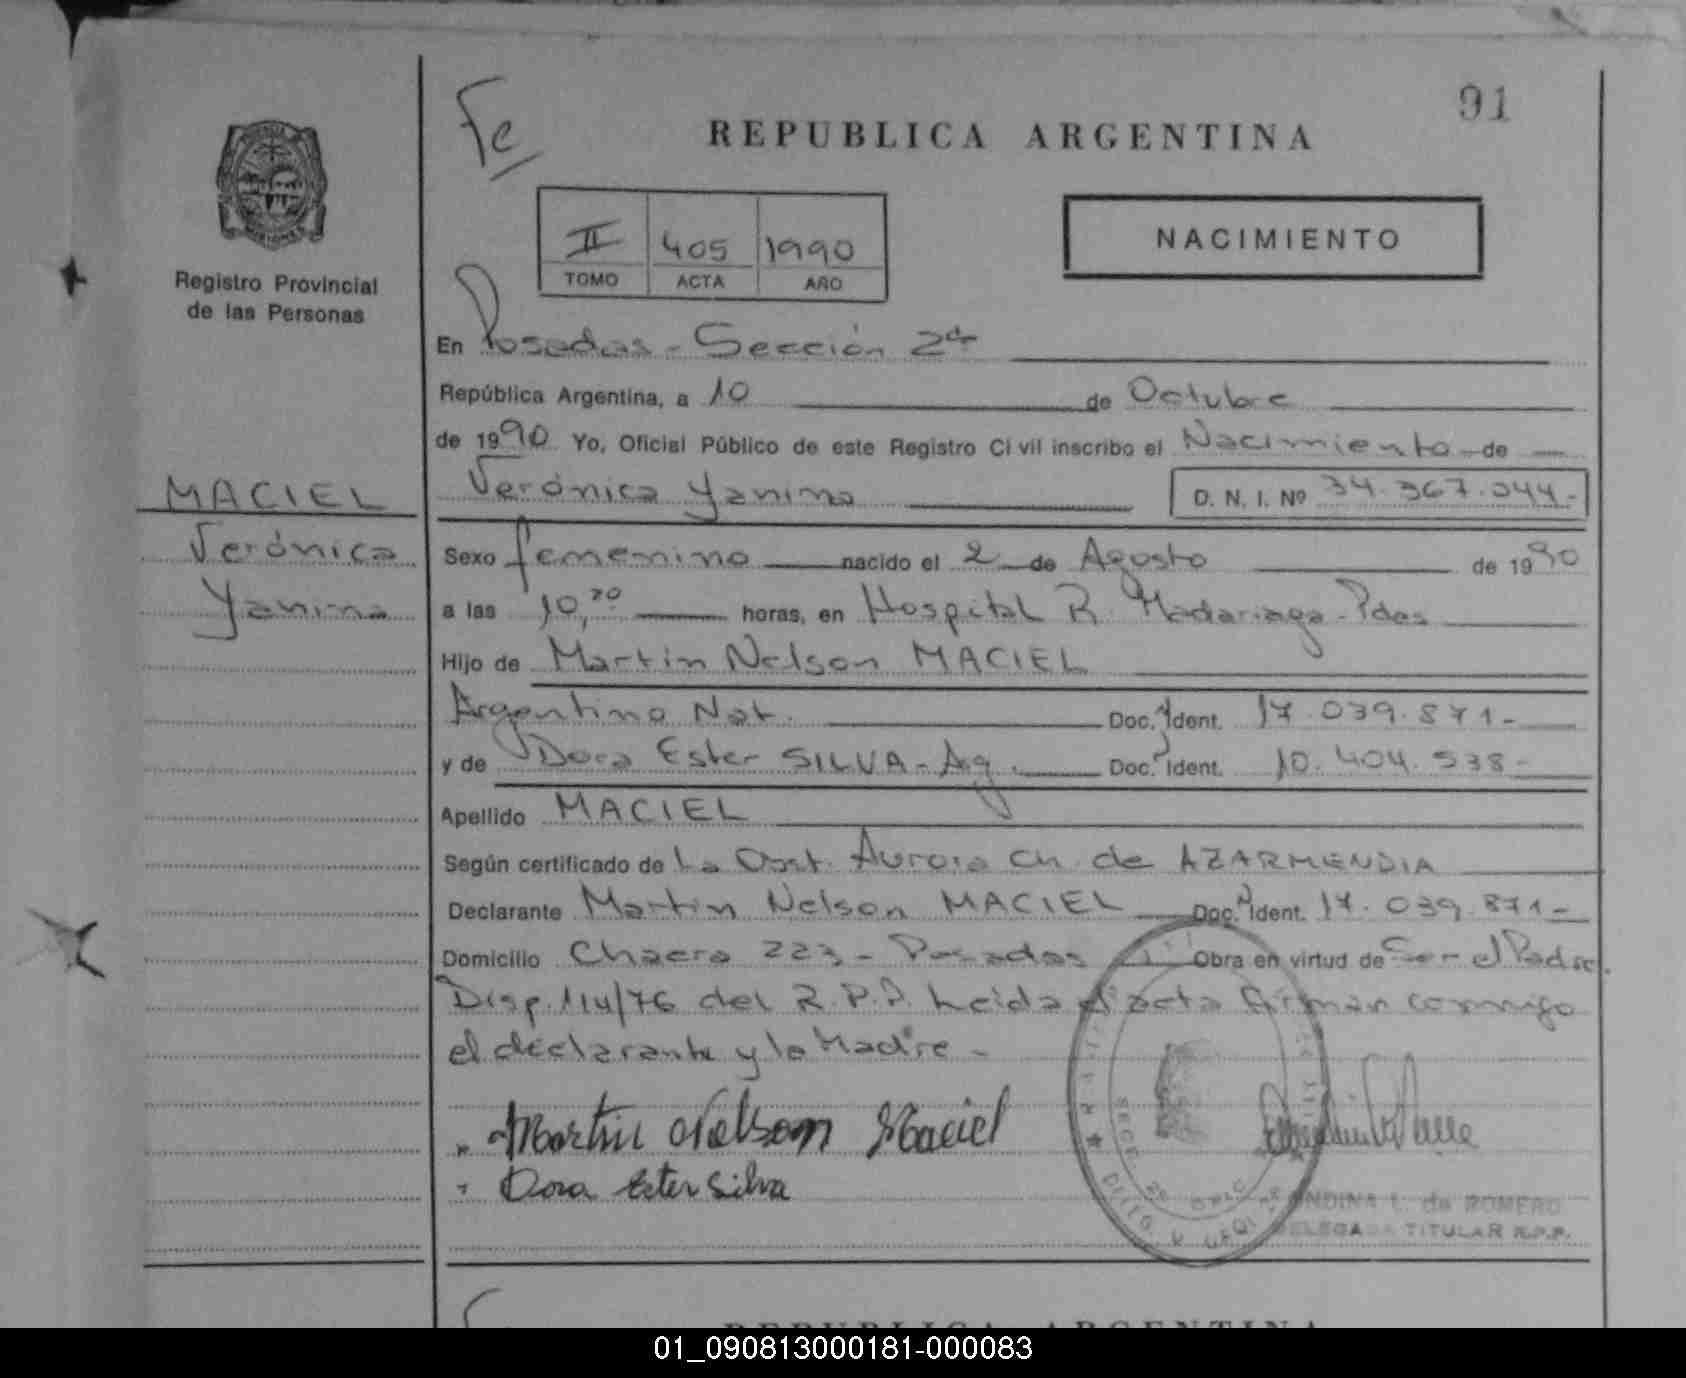 91
Fe
REPUBLICA ARGENTINA
II 405 1990
TOMO ACTA AÑO
NACIMIENTO
MISIONES
Registro Provincial
de las Personas
En Posadas - Sección 2da
República Argentina, a 10 de Octubre
de 1990 Yo, Oficial Público de este Registro Civil inscribo el Nacimiento de
Verónica Yanina D. N. I. Nº 34.367.044.-
MACIEL
Verónica
Yanina
Sexo femenino nacido el 2 de Agosto de 1990
a las 10,20 horas, en Hospital R. Madariaga - Pdas
Hijo de Martin Nelson MACIEL
Argentino Nat. Doc. Ident. 17.039.871-
y de Dora Ester SILVA - Arg. Doc. Ident. 10.404.538-
Apellido MACIEL
Según certificado de La Obst. Aurora Ch. de AZARMENDIA
Declarante Martin Nelson MACIEL Doc. Ident. 17.039.871-
Domicilio Chacra 223 - Posadas Obra en virtud de Ser el Padre.
Disp. 114/76 del R.P.P. Leida el acta firman conmigo
el declarante y la Madre -
Martin Nelson Maciel
Dora Ester Silva
L. de ROMERO
DELEGADA TITULAR R.P.P.
REPUBLICA ARGENTINA
01_090813000181-000083